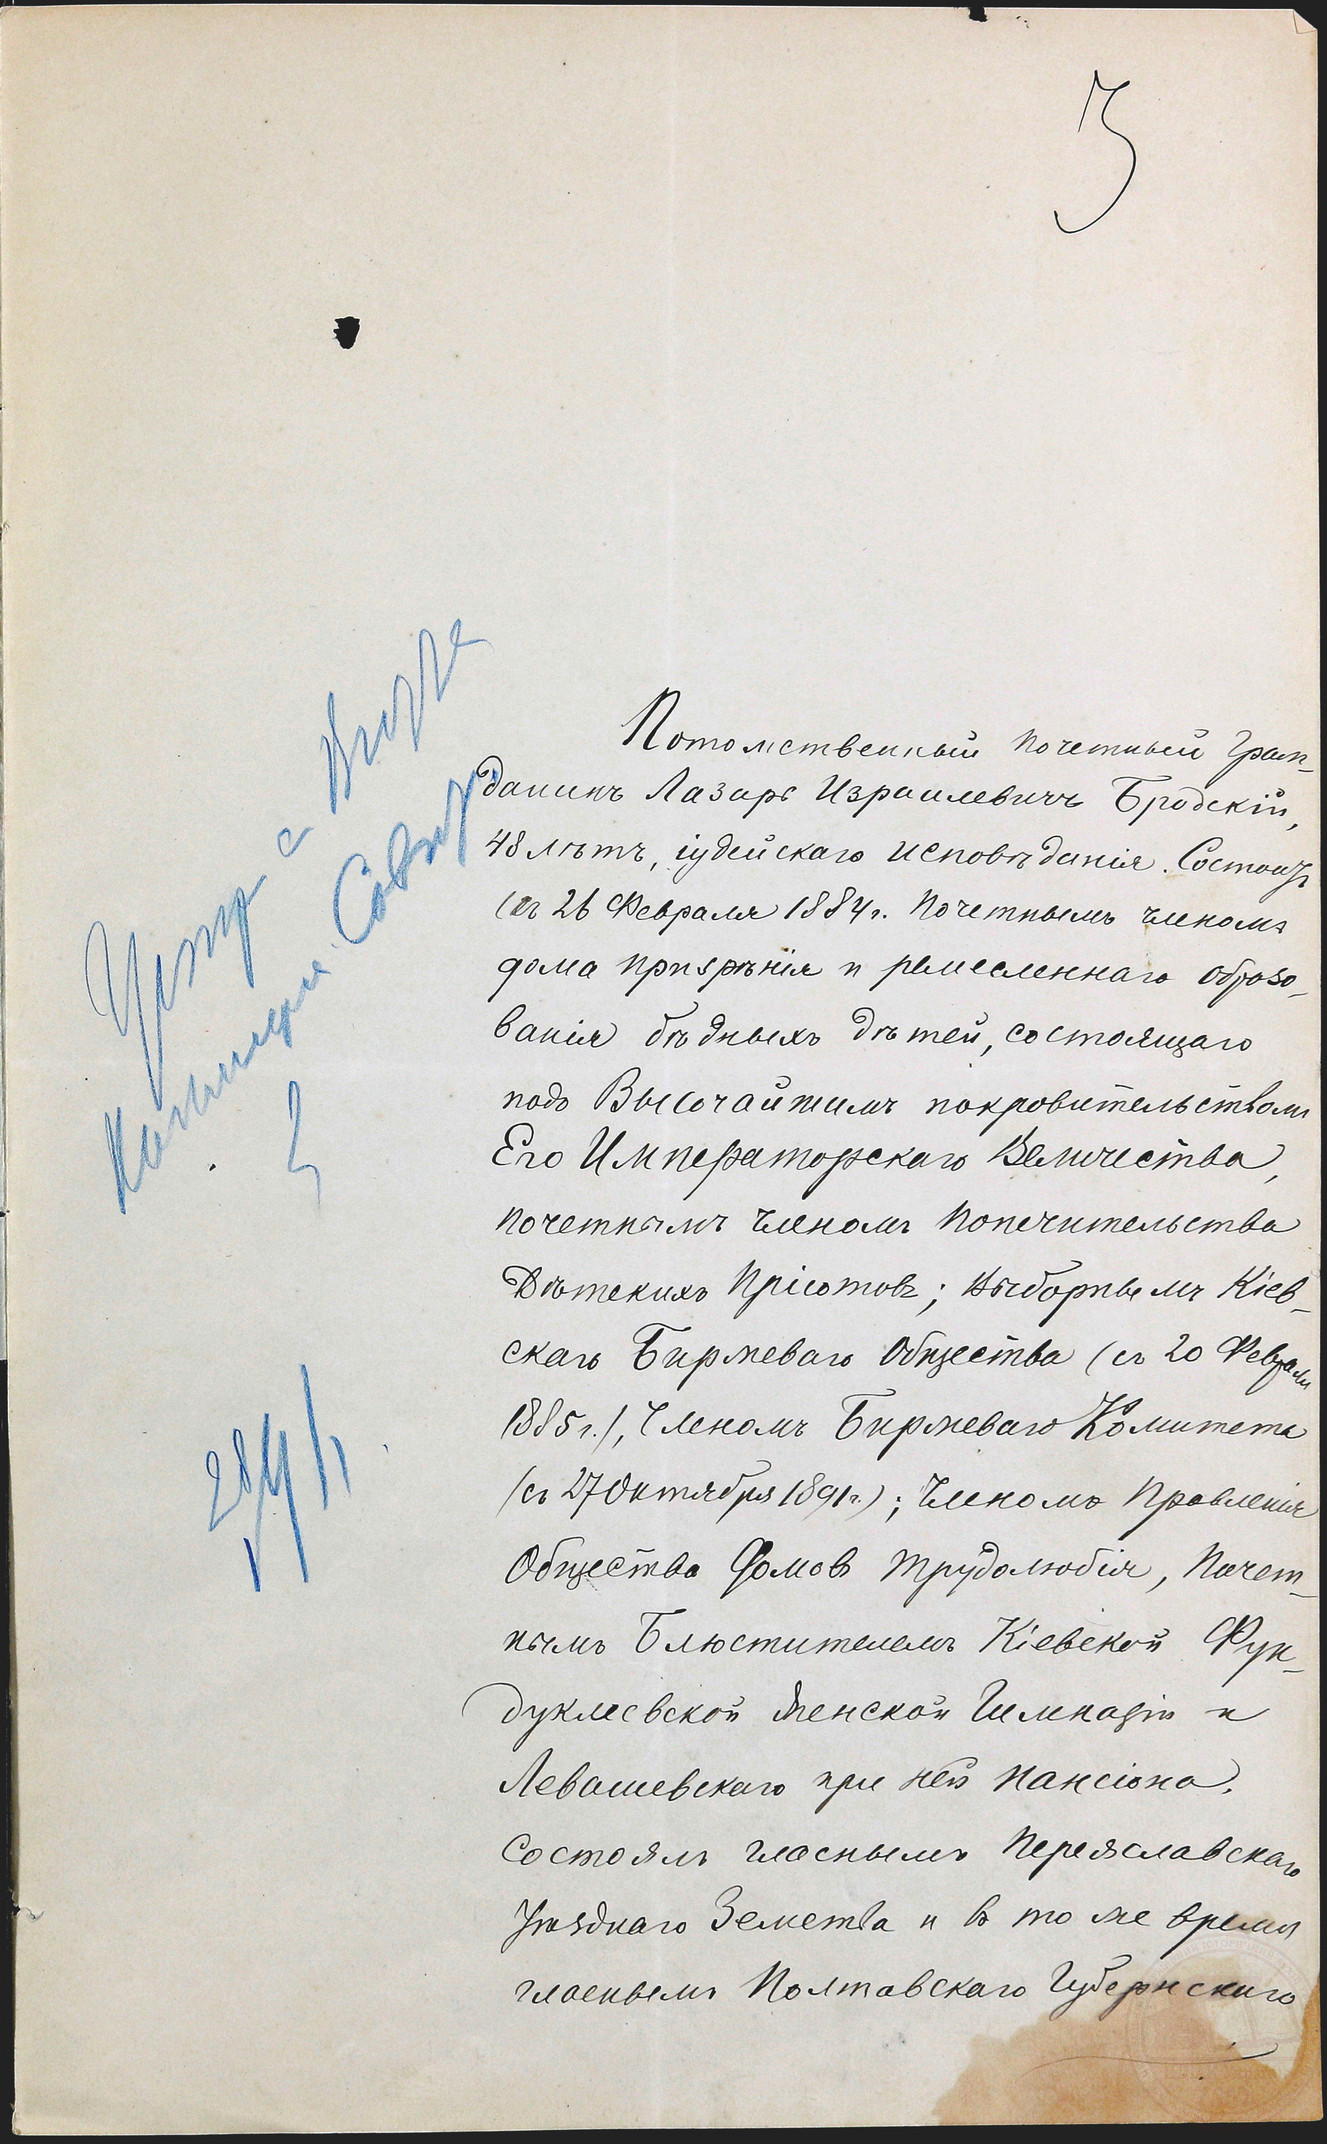 3
Потомственный почетный Граж-
данинъ Лазарь Израилевичъ Бродскій,
48 лѣтъ, іудейскаго исповѣданія. Состоитъ
(съ 26 Февраля 1884 г. Почетнымъ членомъ
дома призрѣнія и ремесленнаго образо-
ванія бѣдныхъ дѣтей, состоящаго
подъ Высочайшимъ покровительствомъ
Его Императорскаго Величества,
почетнымъ членомъ Попечительства
Дѣтскихъ Пріютовъ; Выборнымъ Кіев-
скаго Биржеваго Общества (съ 20 Февраля
1885 г.), Членомъ Биржеваго Комитета
(съ 27 Октября 1891 г.); Членомъ Правленія
Общества Домовъ трудолюбія, Почет-
нымъ Блюстителемъ Кіевской Фун-
дуклеевской Женской Гимназіи и
Левашевскаго при ней пансіона.
Состоялъ гласнымъ Переяславскаго
Уѣзднаго Земства и въ то же время
гласнымъ Полтавскаго Губернскаго